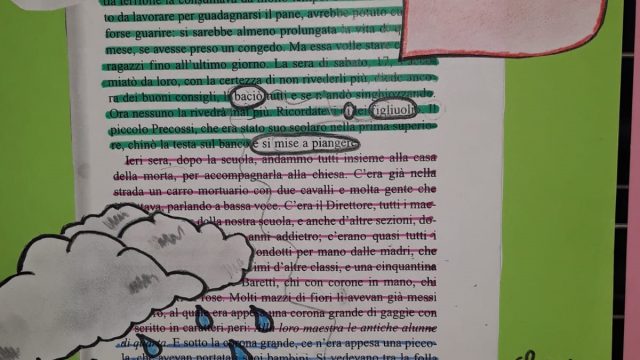 da lavorare per guadagnarsi il pane, avrebbe potuto
forse guarire: si sarebbe almeno prolungata la vita
mese, se avesse preso un congedo. Ma essa volle
ragazzi fino all'ultimo giorno. La sera di sabato, 17
miatò da loro, con la certezza di non rivederli più,
ra dei buoni consigli, li baciò tutti e se n'andò singhiozzando.
Ora nessuno la rivedrà mai più. Ricordate figliuoli. Il
piccolo Precossi, che era stato suo scolaro nella prima superio-
re, chinò la testa sul banco e si mise a piangere
Ieri sera, dopo la scuola, andammo tutti insieme alla casa
della morta, per accompagnarla alla chiesa. C'era già nella
strada un carro mortuario con due cavalli e molta gente che
tava, parlando a bassa voce. C'era il Direttore, tutti i mae-
della nostra scuola, e anche d'altre sezioni, do-
anni addietro; c'erano quasi tutti i
ondotti per mano dalle madri, che
imi d'altre classi, e una cinquantina
Baretti, chi con corone in mano, chi
rose. Molti mazzi di fiori li avevan già messi
al quale era appesa una corona grande di gaggie con
scritto in caratteri neri: Alla loro maestra le antiche alunne
di quarta. E sotto la corona grande, ce n'era appesa una picco-
la che avevan portata i suoi bambini. Si vedevano tra la folla